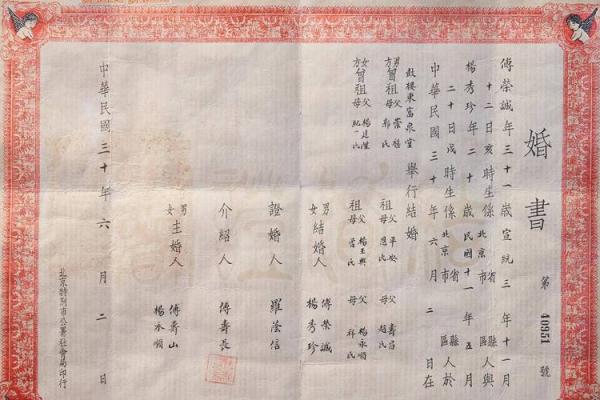 婚書
第 40951 號
傅榮誠年三十一歲宣統三年十一月
十二日亥時生係北京省市縣區人與
楊秀珍年二十歲民國十一年五月
二十日戌時生係北京省市縣區人於
中華民國三十年六月二日在
鼓樓東富泉堂舉行結婚
男方曾祖父榮
祖父
父壽
女方曾祖父楊
祖父楊玉興
父楊永順
男女結婚人 傅榮誠 楊秀珍
證婚人 羅蔭信
介紹人 傅壽長
男女主婚人 傅壽山 楊永順
中華民國三十年六月二日
北京特別市公署社會局印行